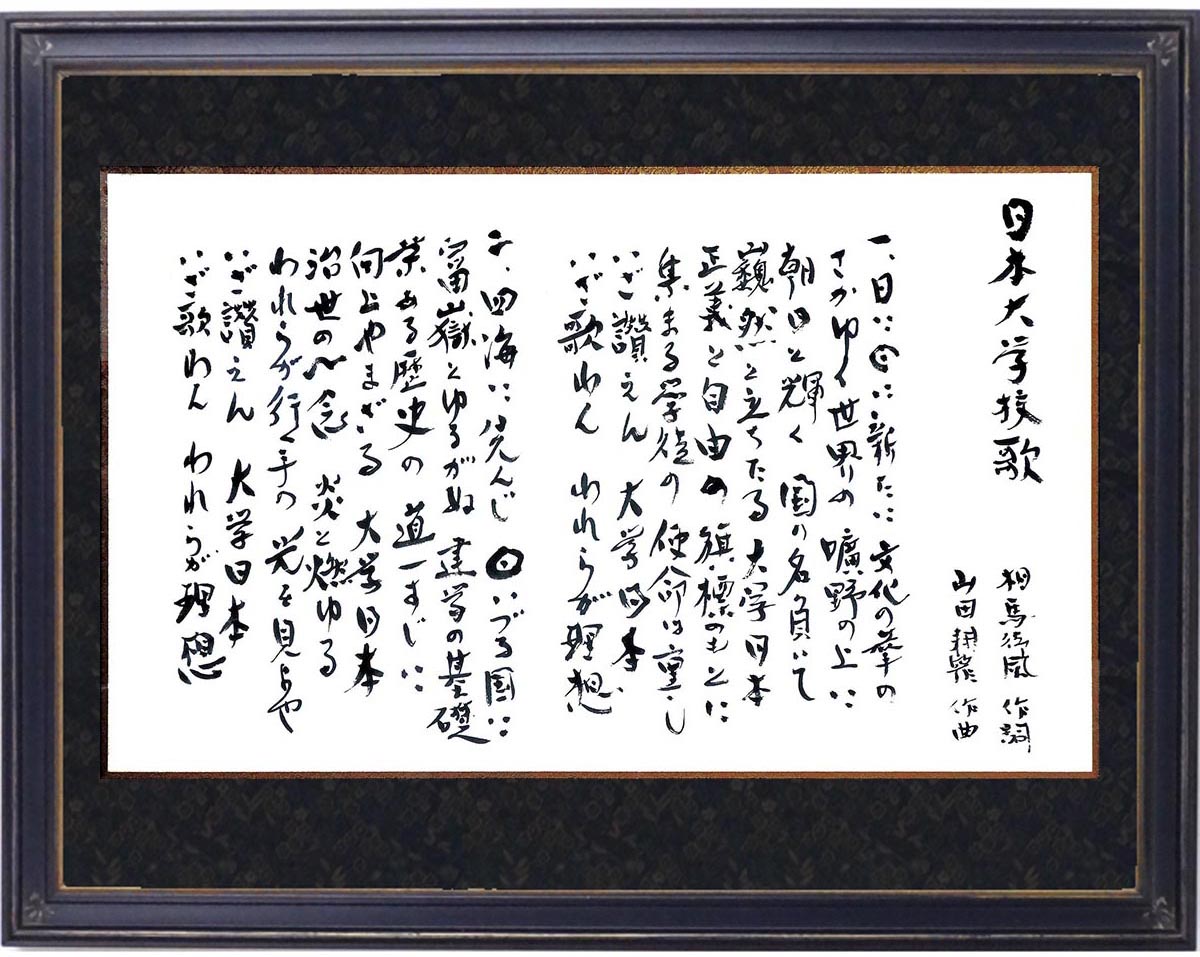 日本大学校歌
相馬御風 作詞
山田耕筰 作曲
一、日に日に新たに 文化の華の
さかゆく世界の 曠野の上に
朝日と輝く 国の名負いて
巍然と立ちたる 大学日本
正義と自由の 旗標のもとに
集まる学徒の 使命は重し
いざ讃えん 大学日本
いざ歌わん われらが理想
二、四海に先んじ 日いづる国に
富嶽とゆるがぬ 建学の基礎
栄ある歴史の 道一すじに
向上やまざる 大学日本
治世の一念 炎と燃ゆる
われらが行く手の 光を見よや
いざ讃えん 大学日本
いざ歌わん われらが理想